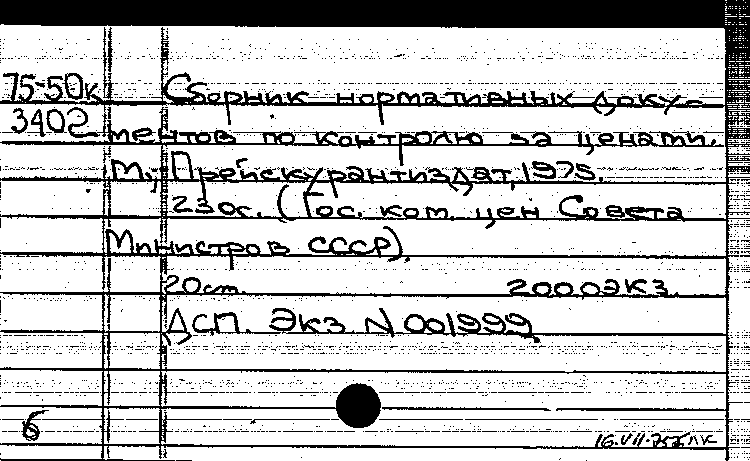 75-50к Сборник нормативных доку-
3402 ментов по контролю за ценами.
М., Прейскурантиздат, 1975.
230с. (Гос. ком. цен Совета
Министров СССР).
20см. 2000экз.
ДСП. Экз N 001999
6
16.VII.75г.